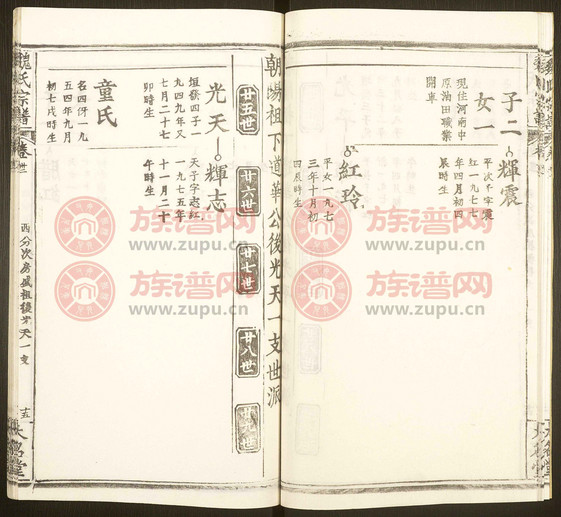 子二
女一
現住河南中
原油田職業
開車
輝震
平次子字震
紅一九七七
年四月初四
辰時生
紅玲
平女一九七
三年十月初
四辰時生
朝暘祖下道華公後光天一支世派
廿五世
廿六世
廿七世
廿八世
廿九世
光天
垣嶽四子一
九四九年又
七月二十七
卯時生
輝志
天子字志紅
一九七五年
十一月二十
午時生
童氏
名四伢一九
五四年九月
初七戌時生
魏氏宗譜
卷廿
西分次房威祖後光天一支
十五
族谱网
www.zupu.cn
族谱网
www.zupu.cn
族谱网
www.zupu.cn
族谱网
www.zupu.cn